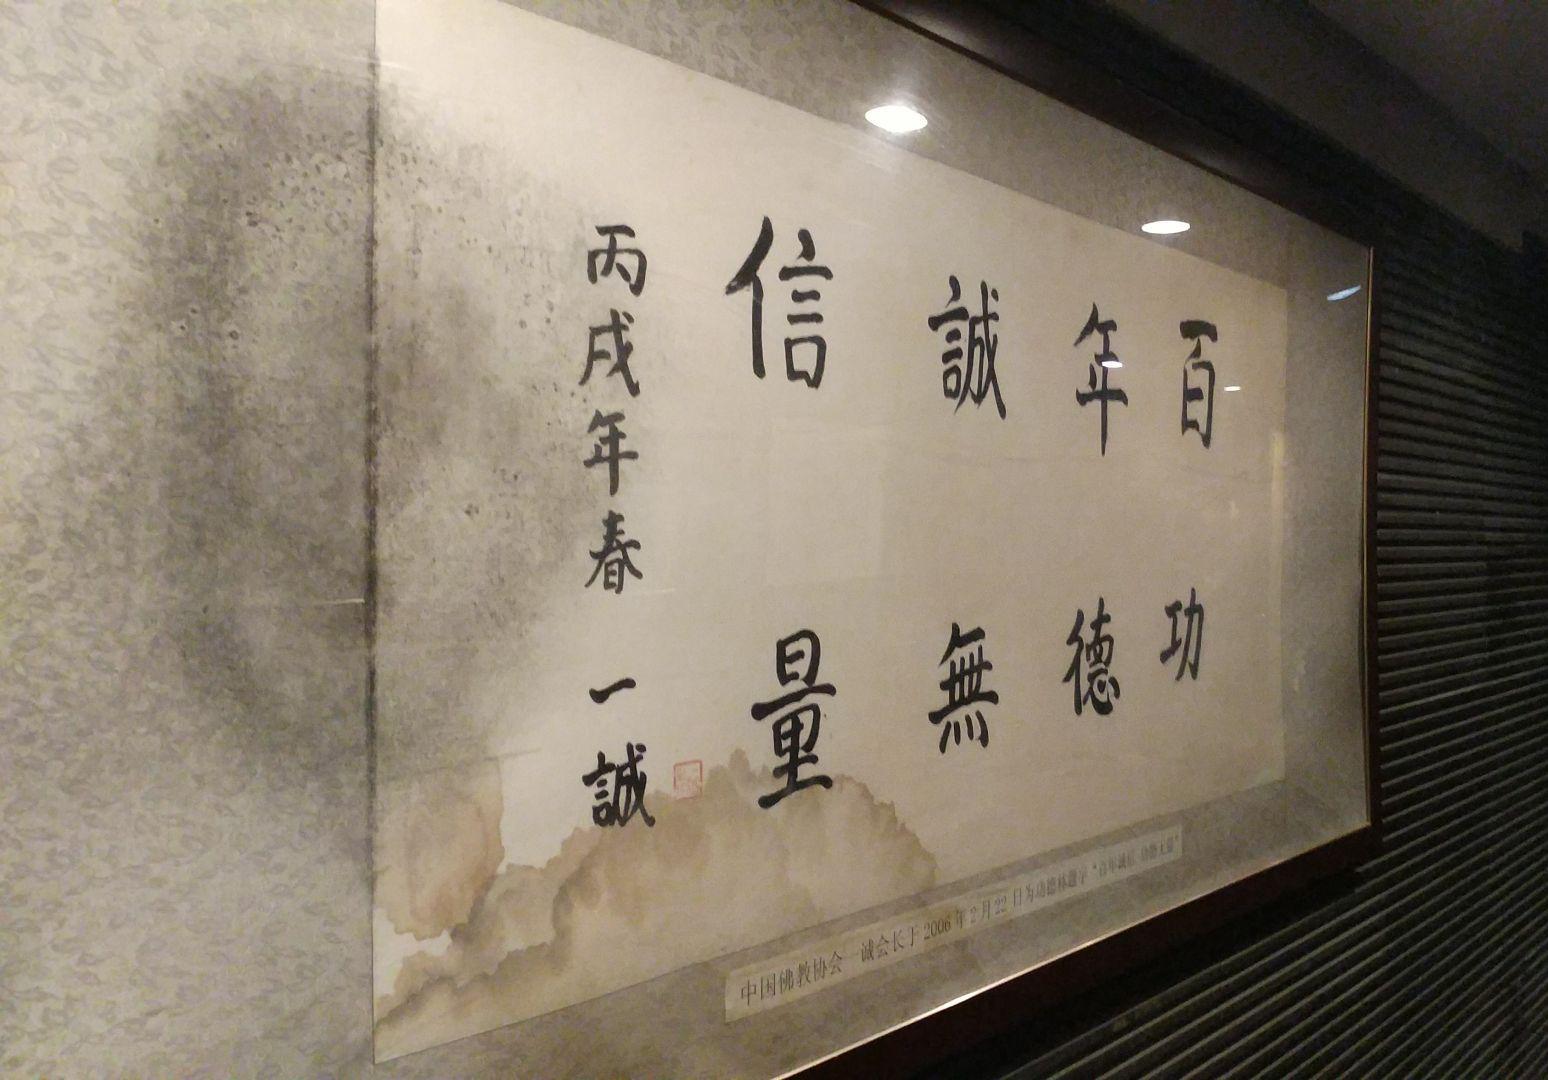 百年誠信
功德無量
丙戌年春 一誠
中国佛教协会一诚会长于2006年2月22日为功德林题字“百年诚信 功德无量”